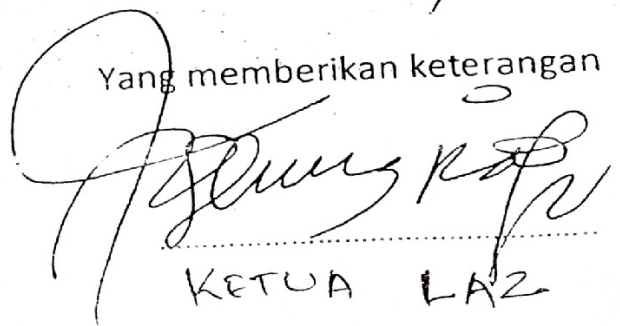 Yang memberikan keterangan
KETUA LAZ